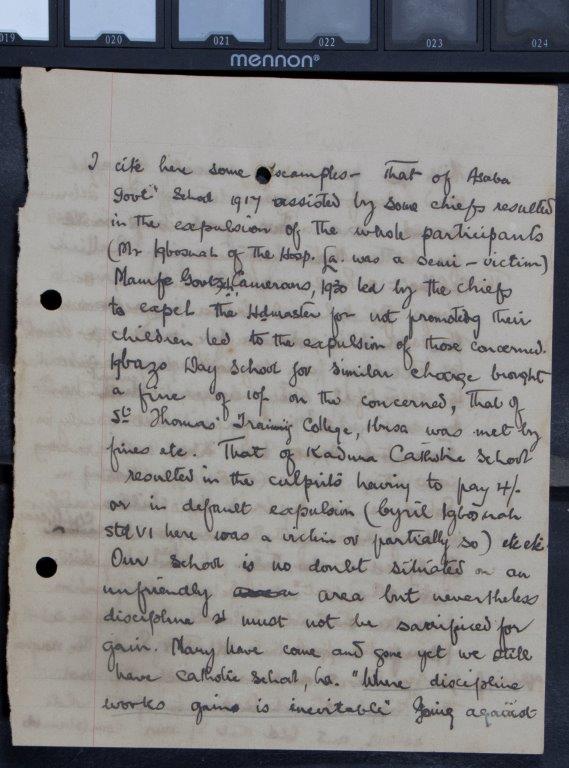 019 020 021 022 023 024
mennon®
I cite here some examples - That of Asaba
Govt School 1917 assisted by some chiefs resulted
in the expulsion of the whole participants
(Mr Igbosuah of the Hosp. was a semi - victim)
Mamfe Govt Sch Cameroons, 1930 led by the chiefs
to expel the Hdmaster for not promoting their
children led to the expulsion of those concerned.
Igbazo Day School for similar charge brought
a fine of 10/- on the concerned, That of
St Thomas' Training College, Ibusa was met by
fines etc. That of Kaduna Catholic School
resulted in the culprits having to pay 4/-
or in default expulsion (Cyril Igbosuah
Std VI here was a victim or partially so) etc etc.
Our School is no doubt situated on an
unfriendly area but nevertheless
discipline must not be sacrificed for
gain. Many have come and gone yet we still
have Catholic School, "Where discipline
works gains is inevitable" Going against